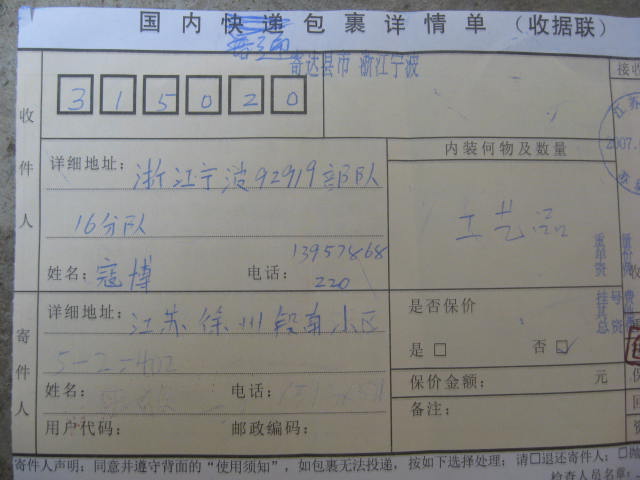 国内快递包裹详情单（收据联）
普通
寄达县市 浙江宁波
接收
315020
收件人
详细地址：浙江宁波92919部队
16分队
姓名：寇博
电话：13957868
220
内装何物及数量
工艺品
江苏
2007.
寄件人
详细地址：江苏徐州段南小区
5-2-402
姓名：
电话：
用户代码：
邮政编码：
是否保价
是□ 否☑
保价金额： 元
备注：
重量
单价
资费
挂号费
其
总资
收
寄件人声明：同意并遵守背面的“使用须知”，如包裹无法投递，按如下选择处理；请□退还寄件人；□抛
检查人员名章：